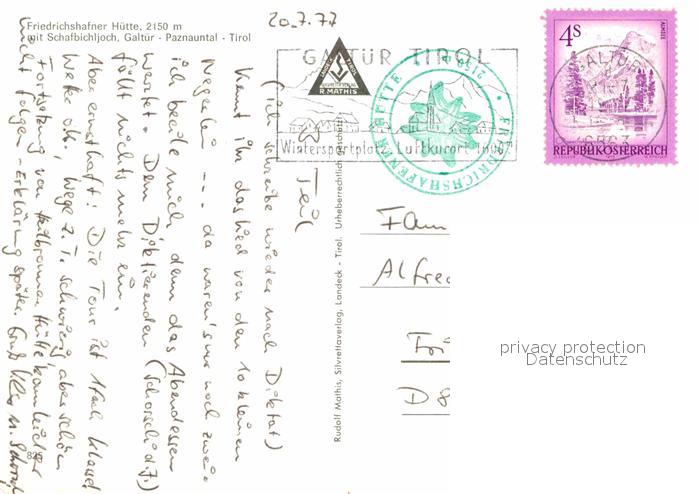 Friedrichshafner Hütte, 2150 m
mit Schafbichljoch, Galtür - Paznauntal - Tirol
20.7.77
GALTÜR TIROL
Wintersportplatz Luftkurort 1600 m
R. MATHIS
FRIEDRICHSHAFENER HÜTTE
2150 m
4S
REPUBLIK ÖSTERREICH
GALTÜR
6563
Teil
(ich schreibe wieder nach Diktat)
Kennt ihr das Lied von den 10 kleinen
Negerlein --- da waren's nur noch zwei
ich beeile mich denn das Abendessen
wartet. Dem Diktierenden (Schorsch d.J.)
fällt nichts mehr ein.
Aber ernsthaft: Die Tour ist 1fach Klasse!
Wette o.k. Wege z.T. schwierig aber schön
Fortsetzung von Heilbronner Hütte kann leider
nicht folgen - Erklärung später. Gruß
Rudolf Mathis, Silvrettaverlag, Landeck - Tirol. Urheberrechtlich geschützt!
Fam
Alfred
Fri
D 8
privacy protection
Datenschutz
835